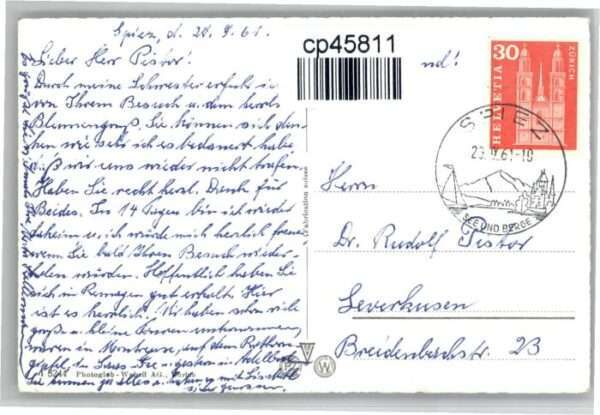 Spiez, d. 28. 9. 61.
cp45811
Lieber Herr Pestor!
nd!
Durch meine Schwester erfuhr ich
von Ihrem Besuch u. dem herrl.
Blumengruß. Sie können sich den-
ken wie sehr ich es bedauert habe
daß wir uns wieder nicht trafen.
Haben Sie recht herzl. Dank für
Beides. In 14 Tagen bin ich wieder
daheim u. ich würde mich herzlich freuen
wenn Sie bald Ihren Besuch wieder-
holen würden. Hoffentlich haben Sie
sich in Remagen gut erholt. Hier
ist es herrlich! Wir haben schon viele
große u. kleine Touren unternommen,
waren in Montreux, auf dem Rothorn-
gipfel, u. gestern in Adelboden
Sie genossen.
A 5244 Photoglob-Wehrli AG., Zürich
Fabrication suisse
30
HELVETIA
ZÜRICH
SPIEZ
29.IX.61-10
SEE UND BERGE
W
Herrn
Dr. Rudolf Pestor
Leverkusen
Breidenbachstr. 23